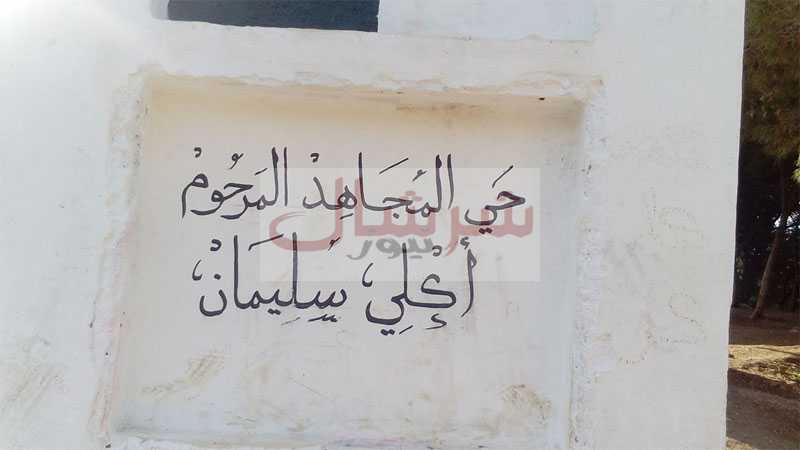 حَي المُجَاهِدْ المَرحُومْ
أكْلِي سُلِيمَانْ
سرشال
نيوز